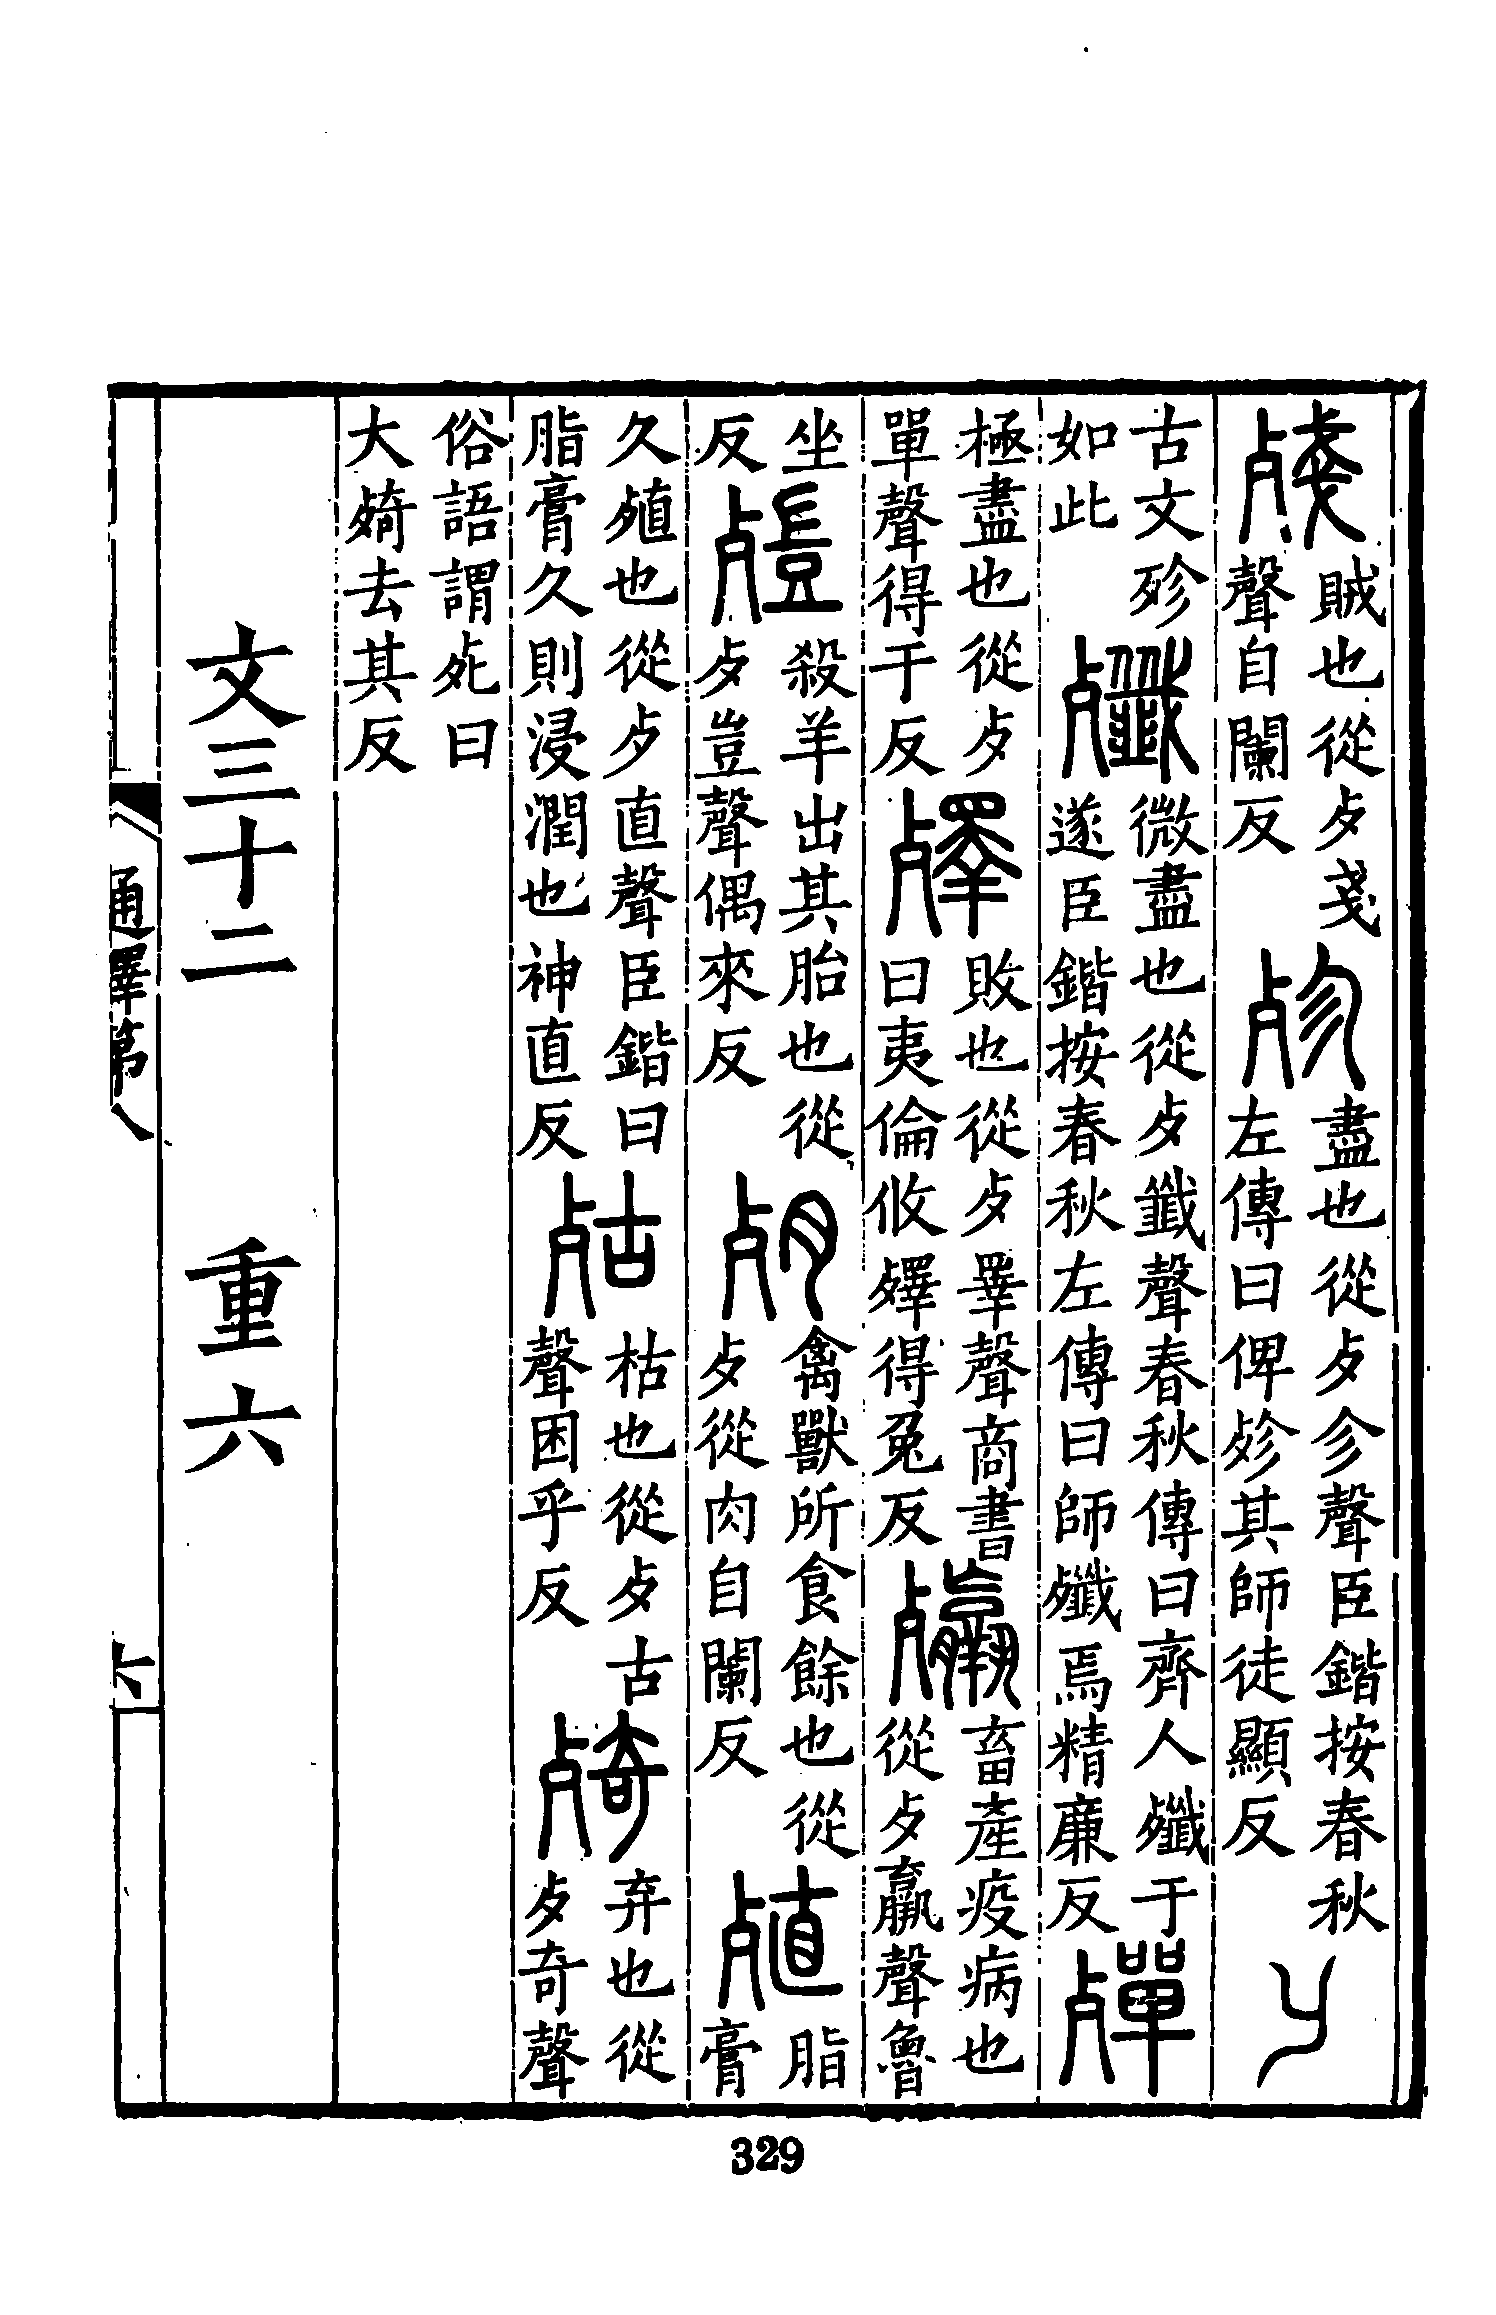 殘賊也從歹戔聲自闌反殄盡也從歹㐱聲臣鍇按春秋左傳曰俾殄其師徒顯反
古文殄如此殲微盡也從歹韱聲春秋傳曰齊人殲于遂臣鍇按春秋左傳曰師殲焉精廉反殫
極盡也從歹單聲得于反殬敗也從歹睪聲商書曰夷倫攸殬得兔反㱻畜產疫病也從歹羸聲魯
坐反𣩄殺羊出其胎也從歹豈聲偶來反𣦼禽獸所食餘也從歹從肉自闌反殖脂膏
久殖也從歹直聲臣鍇曰脂膏久則浸潤也神直反㱠枯也從歹古聲困乎反㱦弃也從歹奇聲
俗語謂死曰大㱦去其反
文三十二　重六
通釋第八
329